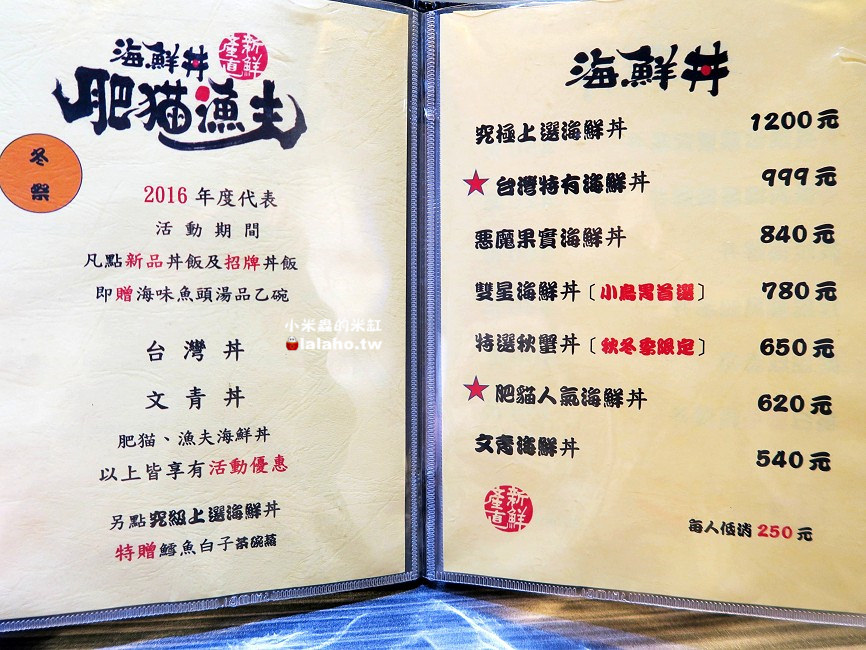 海鮮丼
新鮮
產直
肥猫漁夫
冬祭
2016 年度代表
活動期間
凡點新品丼飯及招牌丼飯
即贈海味魚頭湯品乙碗
小米蟲的米缸
lalaho.tw
台灣丼
文青丼
肥貓、漁夫海鮮丼
以上皆享有活動優惠
另點究級上選海鮮丼
特贈鱈魚白子茶碗蒸
海鮮丼
究極上選海鮮丼 1200元
★台灣特有海鮮丼 999元
惡魔果實海鮮丼 840元
雙星海鮮丼〔小鳥胃首選〕 780元
特選秋蟹丼〔秋冬季限定〕 650元
★肥貓人氣海鮮丼 620元
文青海鮮丼 540元
新鮮
產直
每人低消 250 元